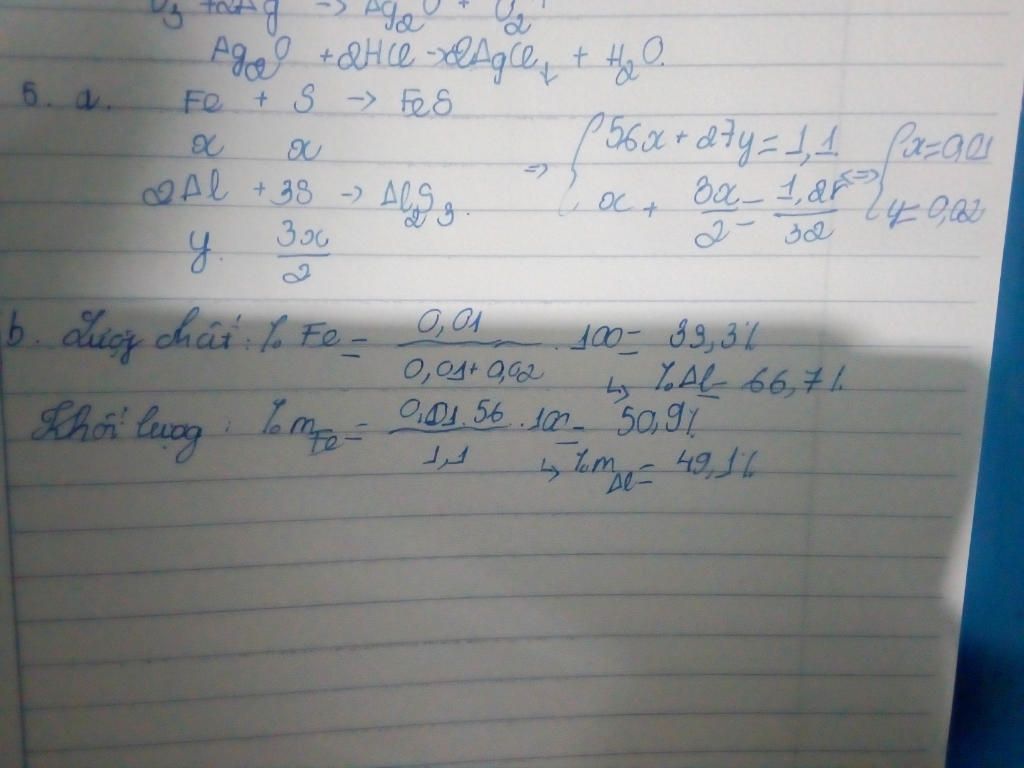 O₃ + 2Ag -> Ag₂O + O₂ ↑
Ag₂O + 2HCl -> 2AgCl↓ + H₂O.
5. a. Fe + S -> FeS
x x
2Al + 3S -> Al₂S₃.
y. 3x/2
=> { 56x + 27y = 1,1
x + 3x/2 = 1,28/32 <=> { x = 0,01
y = 0,02
b. Lượg chất: % Fe = 0,01/(0,01 + 0,02) . 100 = 33,3%
↳ % Al = 66,7%
Khối lượg: %m_Fe = 0,01.56/1,1 . 100 = 50,9%
↳ %m_Al = 49,1%